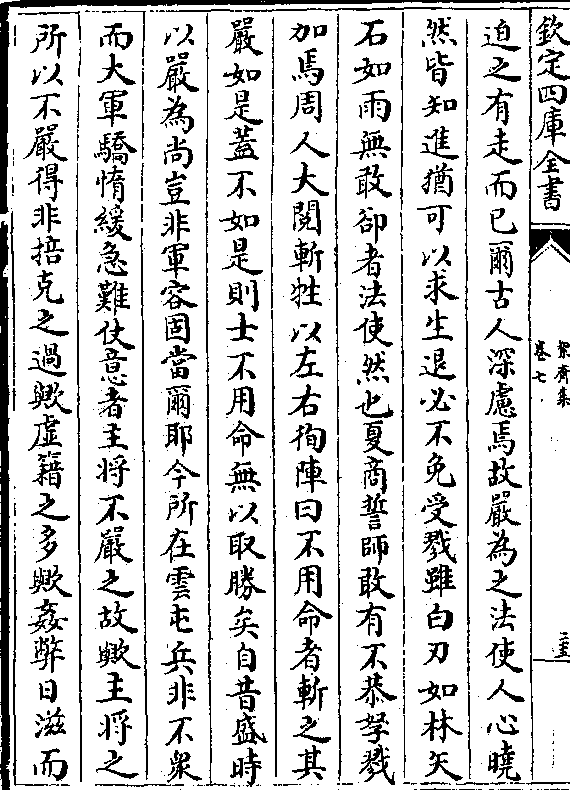 欽定四庫全書
絜齋集
卷七
二五
迫之有走而已爾古人深慮焉故嚴為之法使人心曉
然皆知進猶可以求生退必不免受戮雖白刃如林矢
石如雨無敢卻者法使然也夏商誓師敢有不恭孥戮
加焉周人大閱斬牲以左右徇陣曰不用命者斬之其
嚴如是蓋不如是則士不用命無以取勝矣自昔盛時
以嚴為尚豈非軍容固當爾耶今所在雲屯兵非不衆
而大軍驕惰緩急難仗意者主將不嚴之故歟主將之
所以不嚴得非掊克之過歟虛籍之多歟姦弊日滋而